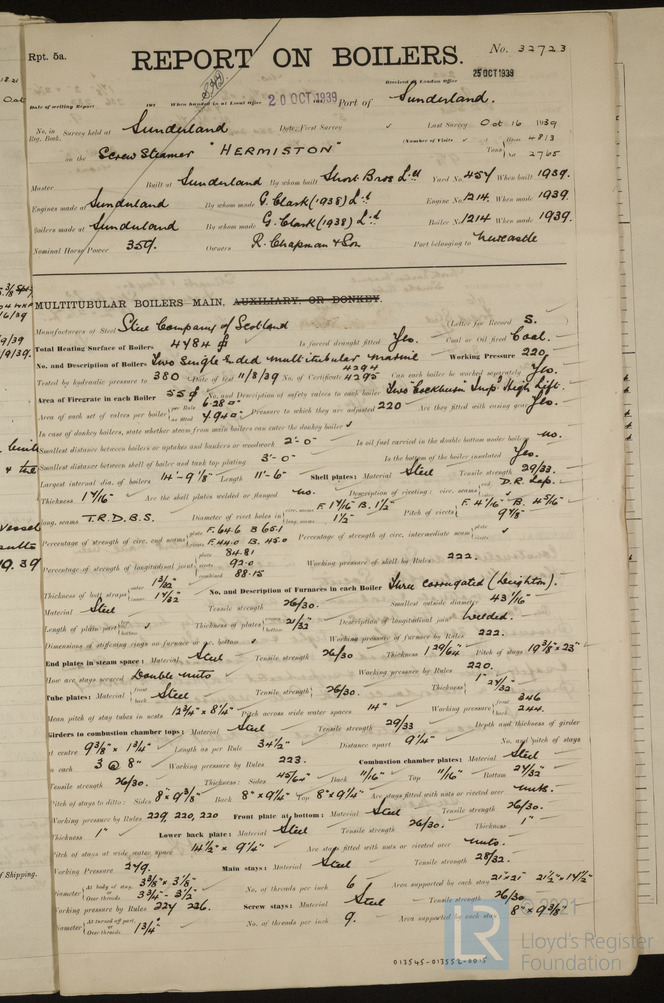 Rpt. 5a.
No. 32723
REPORT ON BOILERS.
25 OCT 1939
Received at London Office
Date of writing Report 19 When handed in at Local Office 20 OCT 1939 Port of Sunderland.
No. in Reg. Book. Survey held at Sunderland Date, First Survey Last Survey Oct 16 1939
on the Screw Steamer "HERMISTON" (Number of Visits Gross 4813
Tons Net 2765
Master Built at Sunderland By whom built Short Bros Ltd Yard No. 454 When built 1939.
Engines made at Sunderland By whom made G. Clark (1938) Ltd Engine No. 1214 When made 1939.
Boilers made at Sunderland By whom made G. Clark (1938) Ltd Boiler No. 1214 When made 1939.
Nominal Horse Power 359. Owners R. Chapman & Son Port belonging to Newcastle
MULTITUBULAR BOILERS MAIN, AUXILIARY, OR DONKEY.
Manufacturers of Steel Steel Company of Scotland (Letter for Record S.
Total Heating Surface of Boilers 4484 Is forced draught fitted Yes. Coal or Oil fired Coal.
No. and Description of Boilers Two Single Ended multitubular marine Working Pressure 220
Tested by hydraulic pressure to 380 Date of test 11/8/39 No. of Certificate 4294 4295 Can each boiler be worked separately Yes.
Area of Firegrate in each Boiler 55 No. and Description of safety valves to each boiler Two "Cockburn" Impd High Lift.
Area of each set of valves per boiler per Rule 6.28 as fitted 7.940 Pressure to which they are adjusted 220 Are they fitted with easing gear Yes.
In case of donkey boilers, state whether steam from main boilers can enter the donkey boiler
Smallest distance between boilers or uptakes and bunkers or woodwork 2'-0" Is oil fuel carried in the double bottom under boilers no.
Smallest distance between shell of boiler and tank top plating 3'-0" Is the bottom of the boiler insulated Yes.
Largest internal dia. of boilers 14'-9 1/8" Length 11'-6" Shell plates: Material Steel Tensile strength 29/33.
Thickness 1 7/16" Are the shell plates welded or flanged no. Description of riveting: circ. seams end D.R. Lap.
long. seams T.R.D.B.S. Diameter of rivet holes in circ. seams F. 1 7/16" B. 1 1/2" long. seams 1 1/2" Pitch of rivets F. 4 1/16" B. 4 5/16" 9 7/8"
Percentage of strength of circ. end seams plate F. 64.6 B 65.1 rivets F. 44.0 B. 45.0 Percentage of strength of circ. intermediate seam plate rivets
Percentage of strength of longitudinal joint plate 84.81 rivets 92.0 combined 88.15 Working pressure of shell by Rules 222.
Thickness of butt straps outer 1 3/32" inner 1 7/32" No. and Description of Furnaces in each Boiler Three corrugated (Deighton).
Material Steel Tensile strength 26/30. Smallest outside diameter 43 7/16"
Length of plain part top bottom Thickness of plates 21/32" Description of longitudinal joint Welded.
Dimensions of stiffening rings on furnace or c.c. bottom Working pressure of furnace by Rules 222.
End plates in steam space: Material Steel Tensile strength 26/30 Thickness 1 29/64" Pitch of stays 19 3/8" x 23"
How are stays secured Double nuts Working pressure by Rules 220.
Tube plates: Material front back Steel Tensile strength 26/30. Thickness 1" 27/32"
Mean pitch of stay tubes in nests 12 3/4" x 8 1/4" Pitch across wide water spaces 14" Working pressure front 346 back 244.
Girders to combustion chamber tops: Material Steel Tensile strength 29/33 Depth and thickness of girder
at centre 9 3/8" x 1 3/4" Length as per Rule 34 1/2" Distance apart 9 1/4" No. and pitch of stays
in each 3 @ 8" Working pressure by Rules 223. Combustion chamber plates: Material Steel
Tensile strength 26/30. Thickness: Sides 45/64" Back 11/16" Top 11/16" Bottom 27/32"
Pitch of stays to ditto: Sides 8" x 9 3/8" Back 8" x 9 1/4" Top 8" x 9 1/4" Are stays fitted with nuts or riveted over nuts.
Working pressure by Rules 229, 220, 220 Front plate at bottom: Material Steel Tensile strength 26/30.
Thickness 1" Lower back plate: Material Steel Tensile strength 26/30. Thickness 1"
Pitch of stays at wide water space 14 1/2" x 9 1/4" Are stays fitted with nuts or riveted over nuts.
Working Pressure 249. Main stays: Material Steel Tensile strength 28/32.
Diameter At body of stay, 3 3/8" x 3 1/8" Over threads 3 3/4" - 3 1/2" No. of threads per inch 6 Area supported by each stay 21" x 21" 21 1/2" x 17 1/2"
Working pressure by Rules 224 226. Screw stays: Material Steel Tensile strength 26/30
Diameter At turned off part, Over threads 1 3/4" No. of threads per inch 9. Area supported by each stay 8" x 9 3/8"
© 2021
LR Lloyd's Register
Foundation
013545-013552-0015